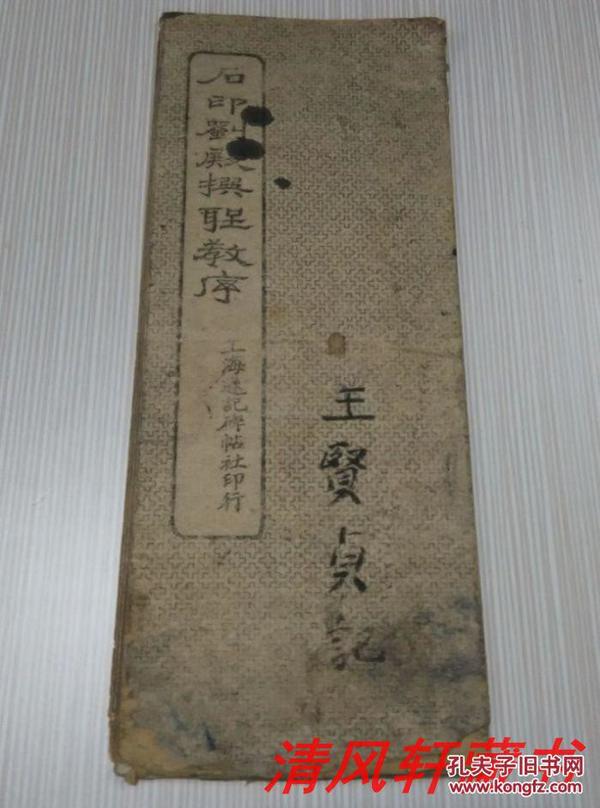 石印劉殿撰聖教序
上海進記碑帖社印行
王賢貞記
清风轩藏书
孔夫子旧书网
www.kongfz.com